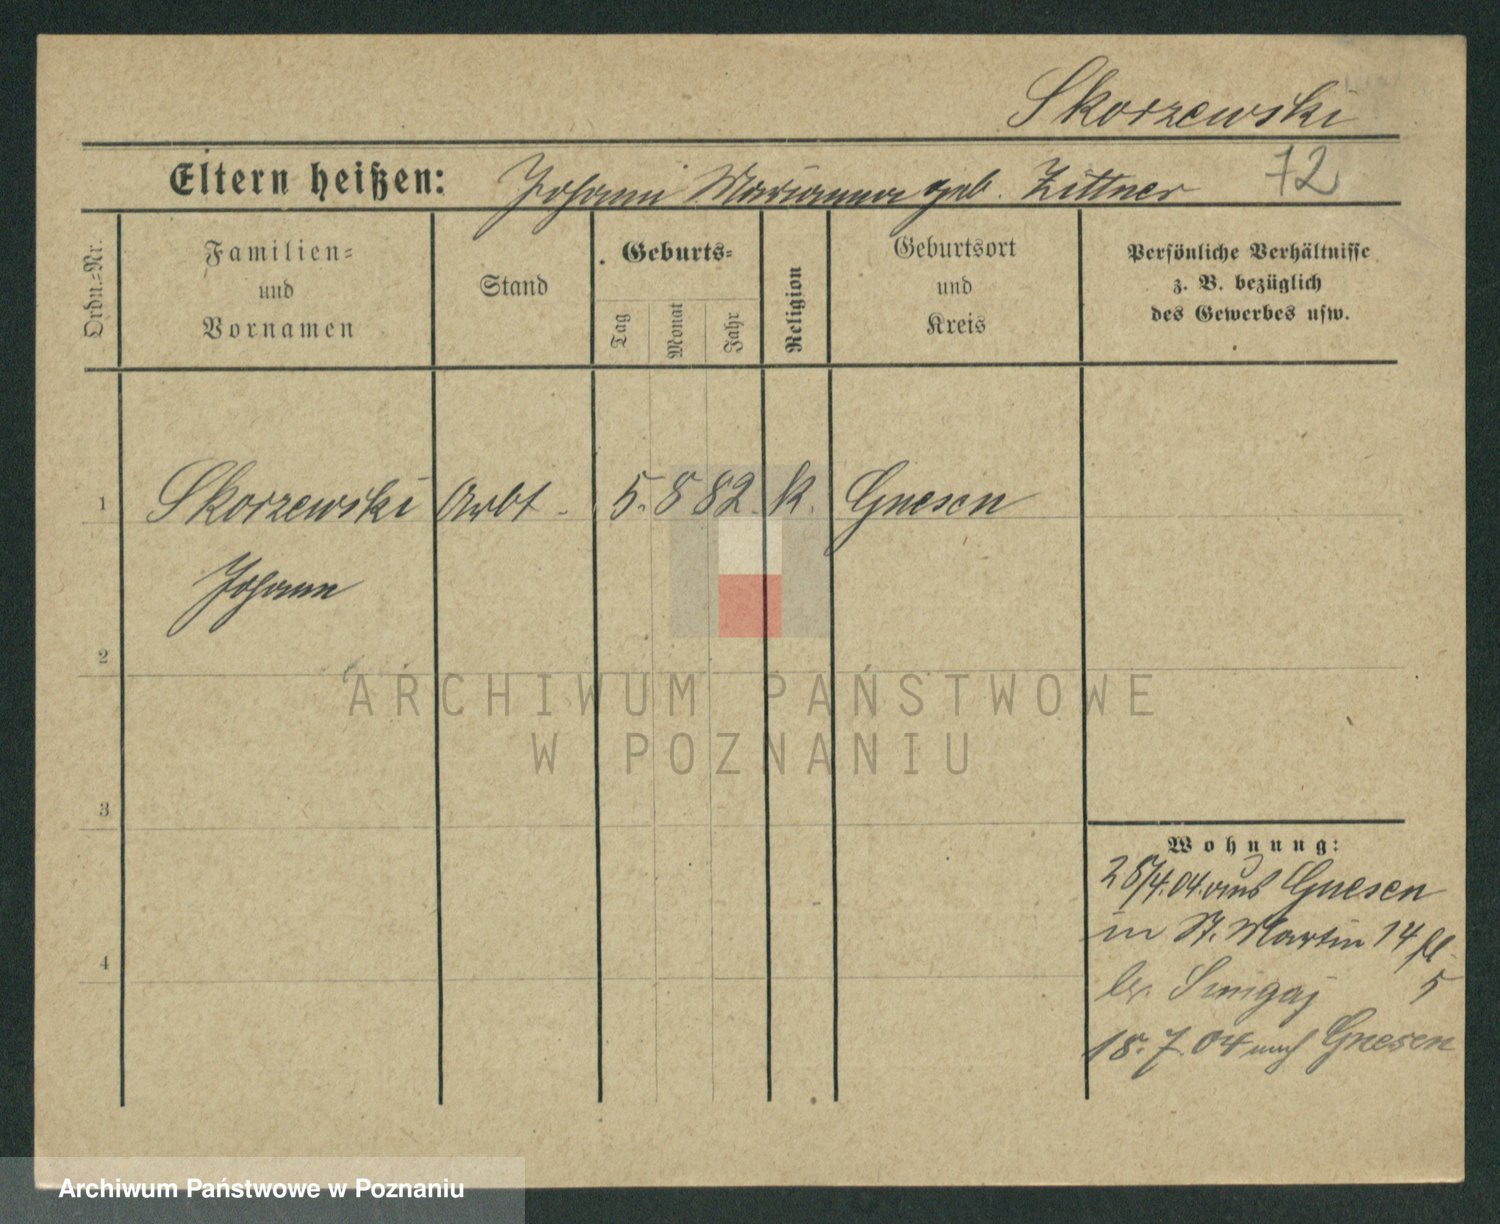 Skorzewski
Eltern heißen: Johann Marianna geb. Zittner 72
Ordn.-Nr.
Familien-
und
Vornamen
Stand
Geburts-
Tag
Monat
Jahr
Religion
Geburtsort
und
Kreis
Persönliche Verhältnisse
z. B. bezüglich
des Gewerbes usw.
1 Skorzewski Arbt. 5. 8 82. k. Gnesen
Johann
2
ARCHIWUM PAŃSTWOWE
W POZNANIU
3
Wohnung:
4.04. aus Gnesen
in St. Martin 14
4
5
18.7.04 nach Gnesen
Archiwum Państwowe w Poznaniu